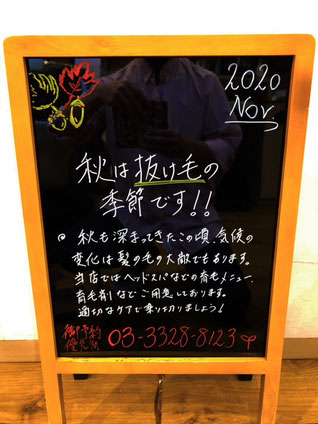 2020
Nov.
秋は抜け毛の
季節です!!
秋も深まってきたこの頃、気候の
変化は髪の毛の大敵でもあります。
当店ではヘッドスパなどの育毛メニュー、
育毛剤などご用意しております。
適切なケアで乗り切りましょう!
御予約
優先制
03-3328-8123